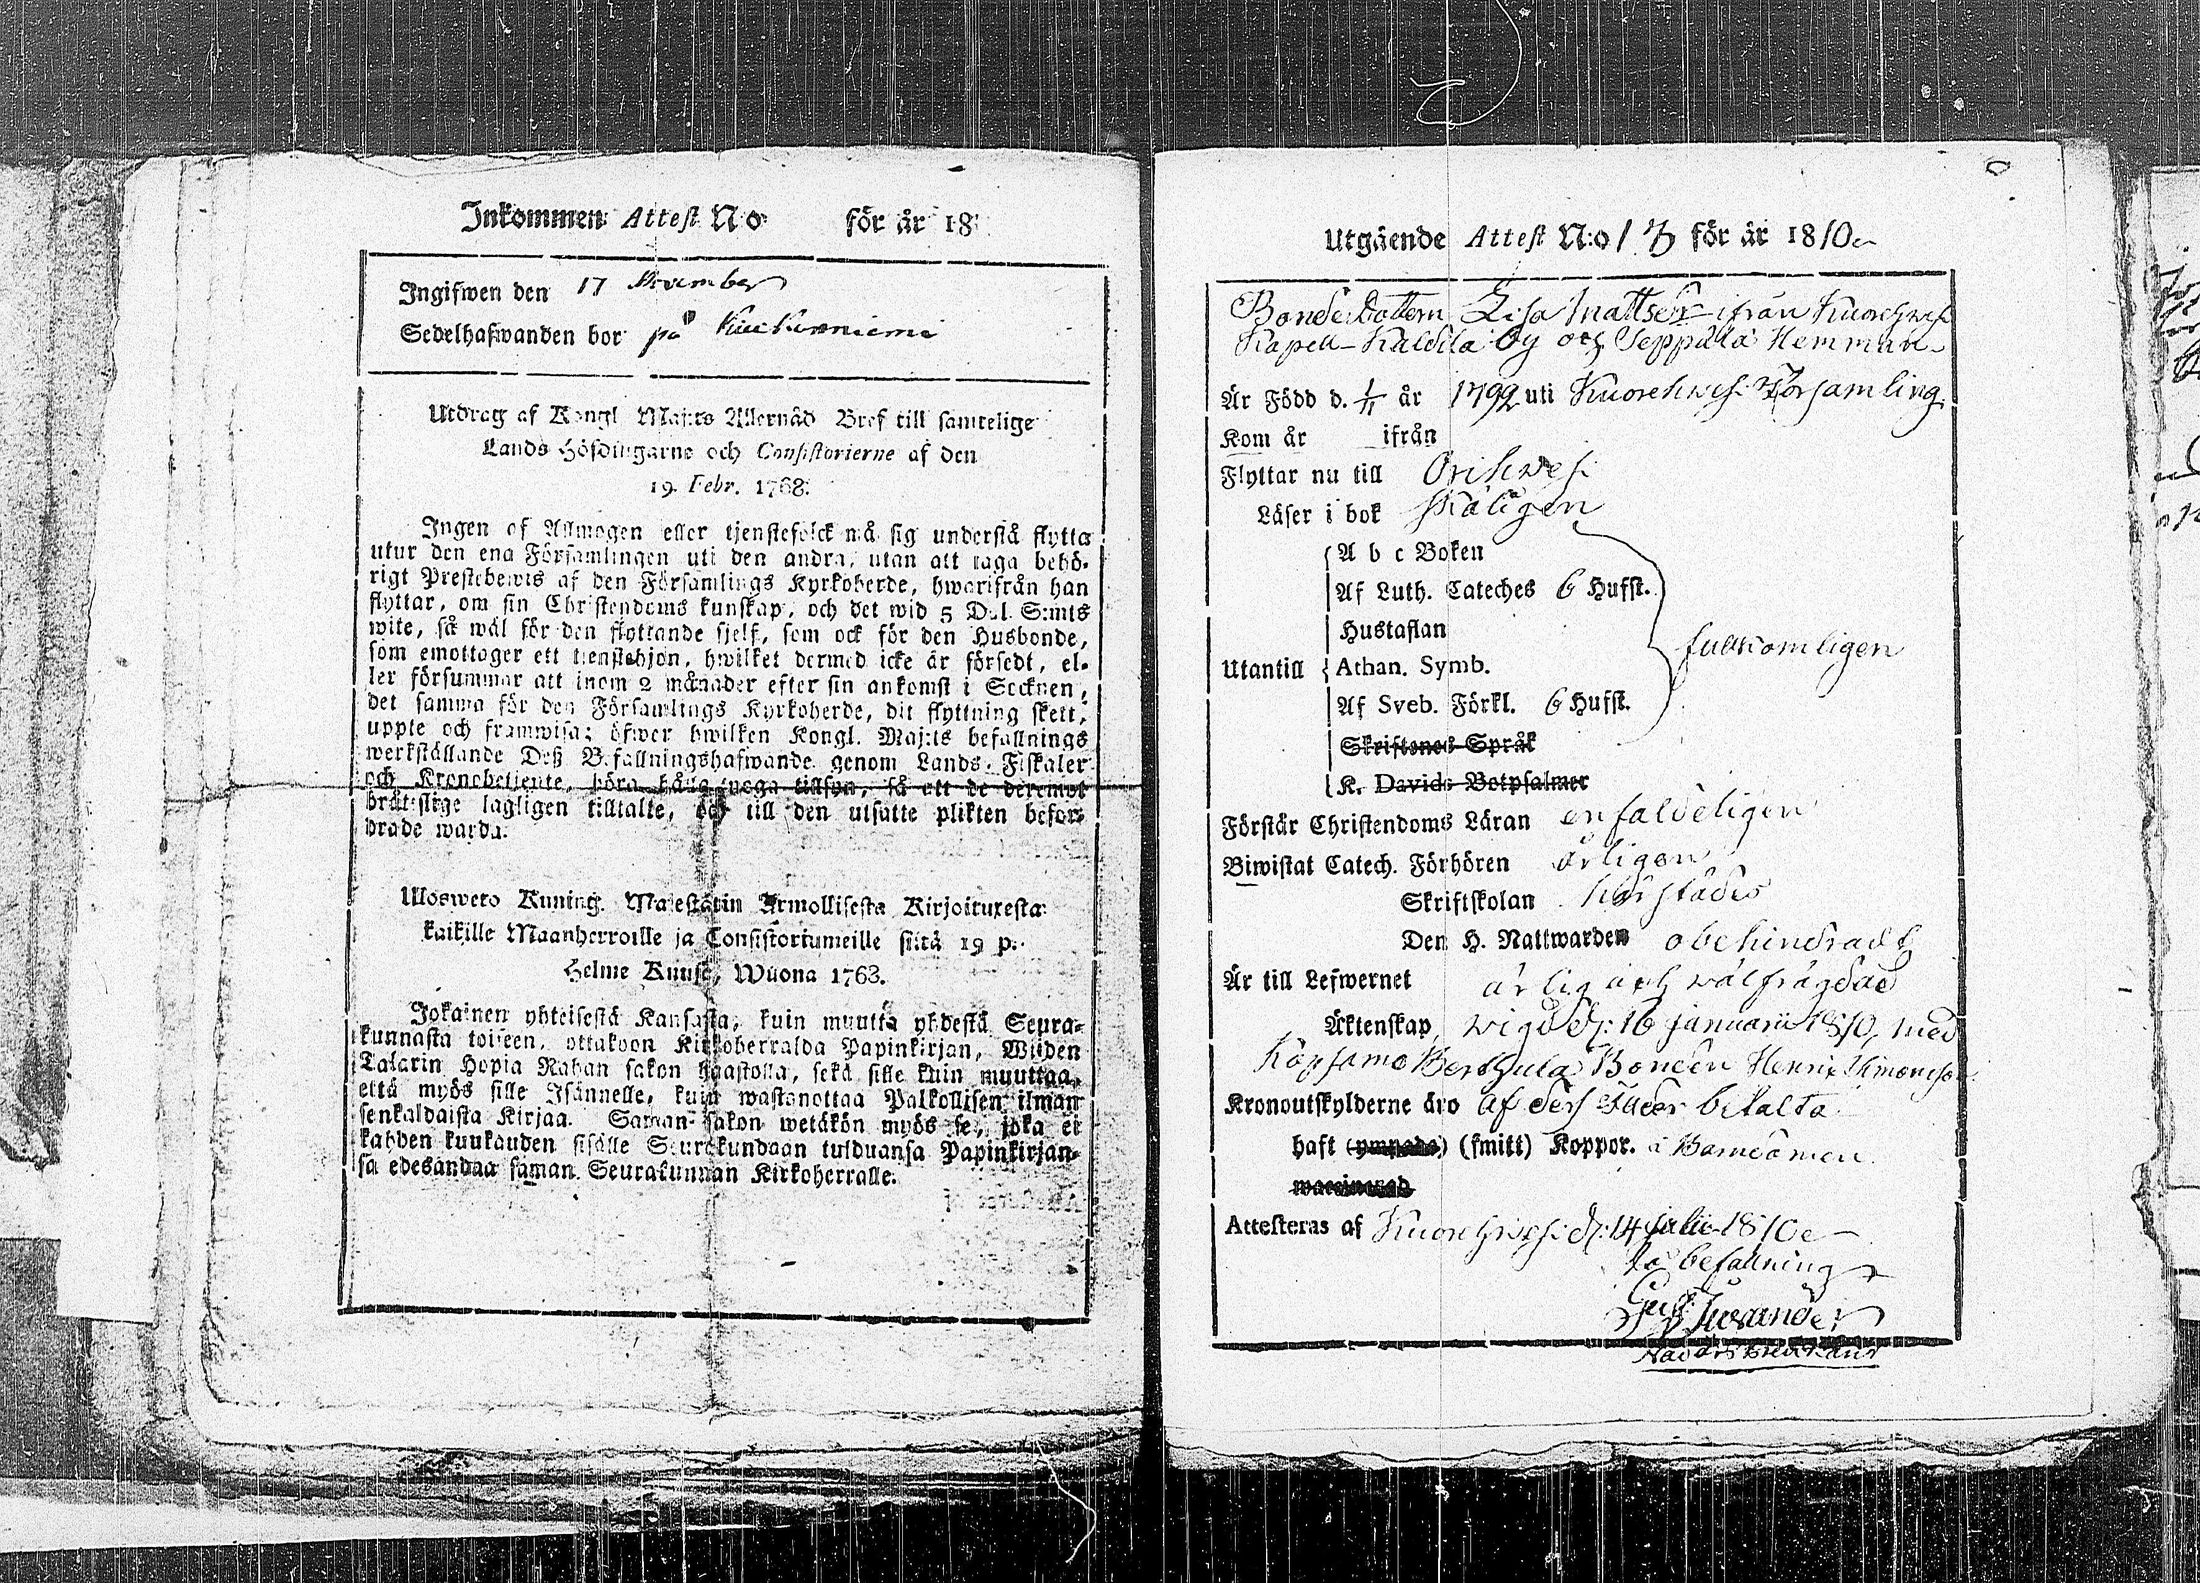 Inkommen Attest No för år 18
Ingifwen den 17 November
Sedelhafwanden bor på
Utdrag af Kongl Maj:ts Allernåd Bref till samtelige
Lands Höfdingarne och Consistorierne af den
19. Febr. 1768.
Ingen af Allmogen eller tjenstefolck må sig understå flytta
utur den ena Församlingen uti den andra, utan att taga behö-
rigt Prestebewis af den Församlings Kyrkoherde, hwarifrån han
flyttar, om sin Christendoms kunskap, och det wid 5 Dal. S:mts
wite, så wäl för den flyttande sjelf, som ock för den Husbonde,
som emottager ett tienstehjon, hwilket dermed icke är försedt, el-
ler försummar att inom 2 månader efter sin ankomst i Socknen,
det samma för den Församlings Kyrkoherde, dit flyttning skett,
uppte och framwisa; öfwer hwilken Kongl. Maj:ts befallnings
werkställande Deß Befallningshafwande genom Lands-Fiskaler
och Kronobetjente, böra hålla noga tillsyn, så att de deremot
bråtslige lagligen tilltalte, och till den utsatte plikten befor-
drade warda.
Uloswero Kuning. Majestätin Armollisesta Kirjoituxesta
kaikille Maanherroille ja Consistoriumeille siitä 19 p:
Helme Kuusa, Wuona 1763.
Jokainen yhteisestä Kansasta, kuin muutta yhdestä Seura-
kunnasta toiseen, ottakoon Kirkoherralda Papinkirjan, Wiiden
Talarin Hopia Rahan sakon haastolla, sekä sille kuin muuttaa,
että myös sille Isännelle, kuin wastanottaa Palkollisen ilman
senkaldaista Kirjaa. Saman sakon wetäkön myös se, joka ei
kahden kuukauden sisälle Seurakundaan tulduansa Papinkirjan-
sa edesandaa saman Seurakunnan Kirkoherralle.
Utgående Attest N:o 13 för år 1810
Bondedottern Lisa Mattsdr ifrån Kuorehwesi
Kapell Kaldila By och Seppälä Hemman
Är Född d. 1/11 år 1792 uti Kuorehwesi Församling
Kom år ifrån
Flyttar nu till Orihwesi
Läser i bok skäligen
A b c Boken
Af Luth. Cateches 6 Hufst.
Hustaflan
Utantill Athan. Symb. fullkomligen
Af Sveb. Förkl. 6 Hufst.
Skriftenes Språk
K. Davids Botpsalmer
Förstår Christendoms Läran enfaldeligen
Biwistat Catech. Förhören årligen
Skriftskolan härstädes
Den H. Nattwarden obehindradt
Är till Lefwernet ärlig och wälfrägdad
Äktenskap, wigd d: 16 januarii 1810, med
Bonden Henric Simonsson
Kronoutskylderne äro af dess Fader betalta
haft (ympade) (smitt) Koppor. i Barndomen
waccinerad
Attesteras af Kuorehwesi d: 14 julii 1810
På befallning